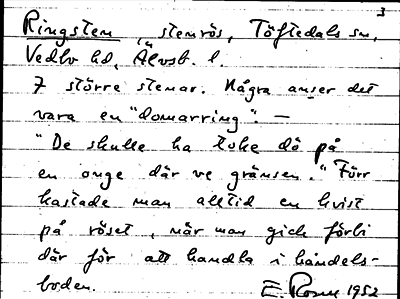 3
Ringsten stenrös, Töftedals sn,
Vedbo hd, Älvsb. l.
7 större stenar. Några anser det
vara en "domarring". —
"De skulle ha toke dö på
en onge där ve gränsen." Förr
kastade man alltid en kvist
på röset, när man gick förbi
där för att handla i handels-
boden. E. 1952